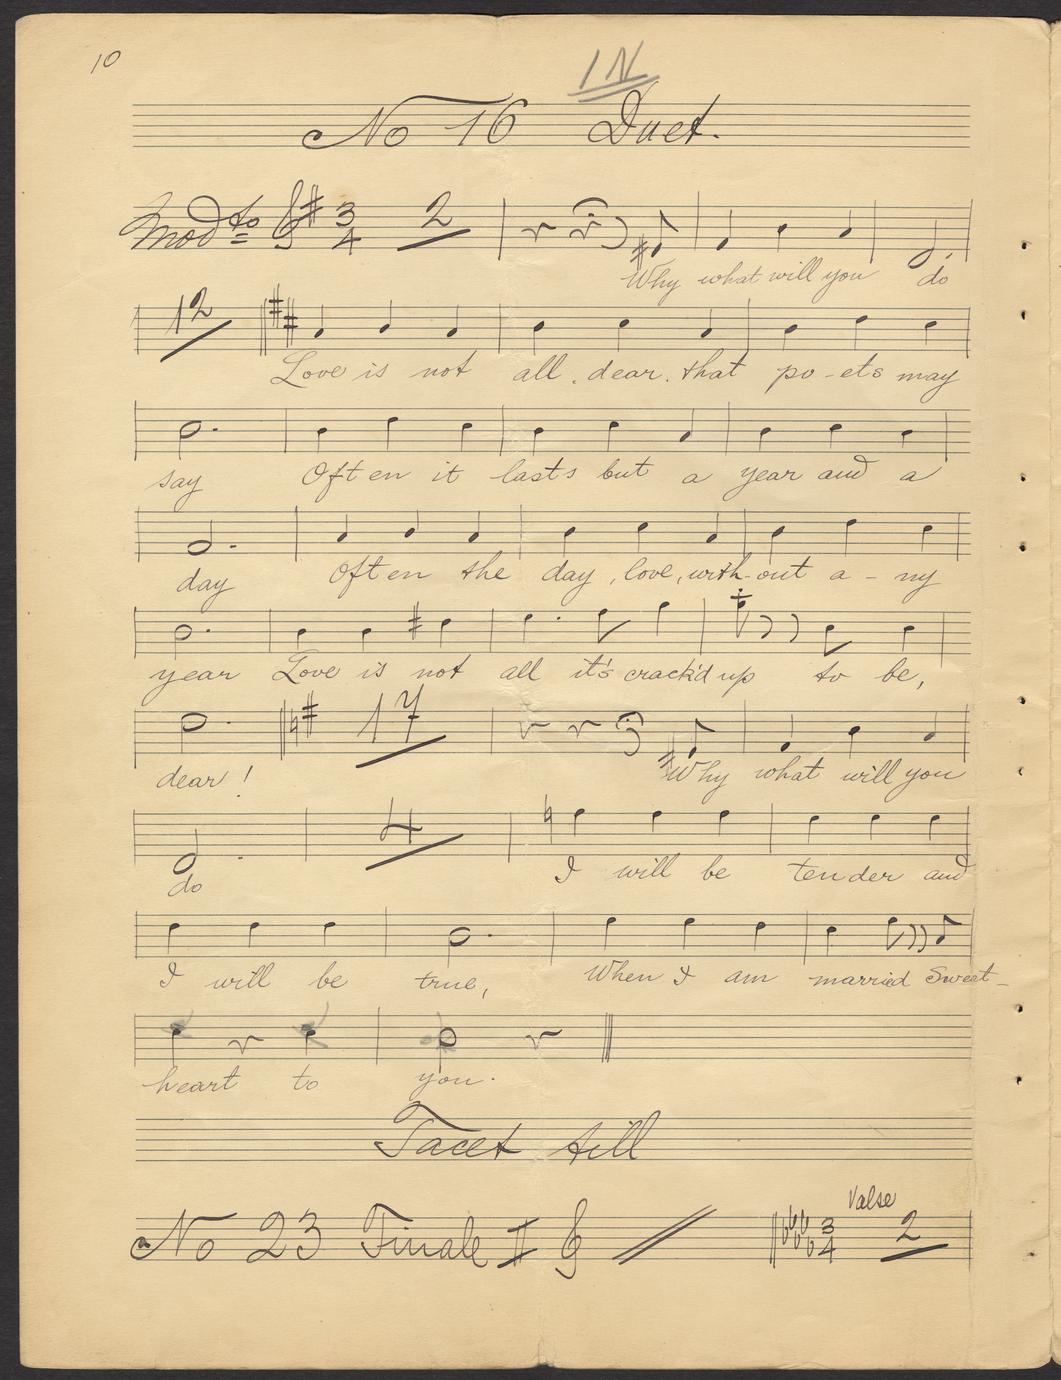 10
IN
No 16 Duet.
Modto 3 4 2
Why what will you do
12
Love is not all, dear, that po-ets may
say Often it lasts but a year and a
day Often the day, love, with-out a-ny
year Love is not all it's crack'd up to be,
17
dear! Why what will you
4
do I will be tender and
I will be true, When I am married Sweet-
heart to you.
Tacet till
No 23 Finale
Valse
3 4 2